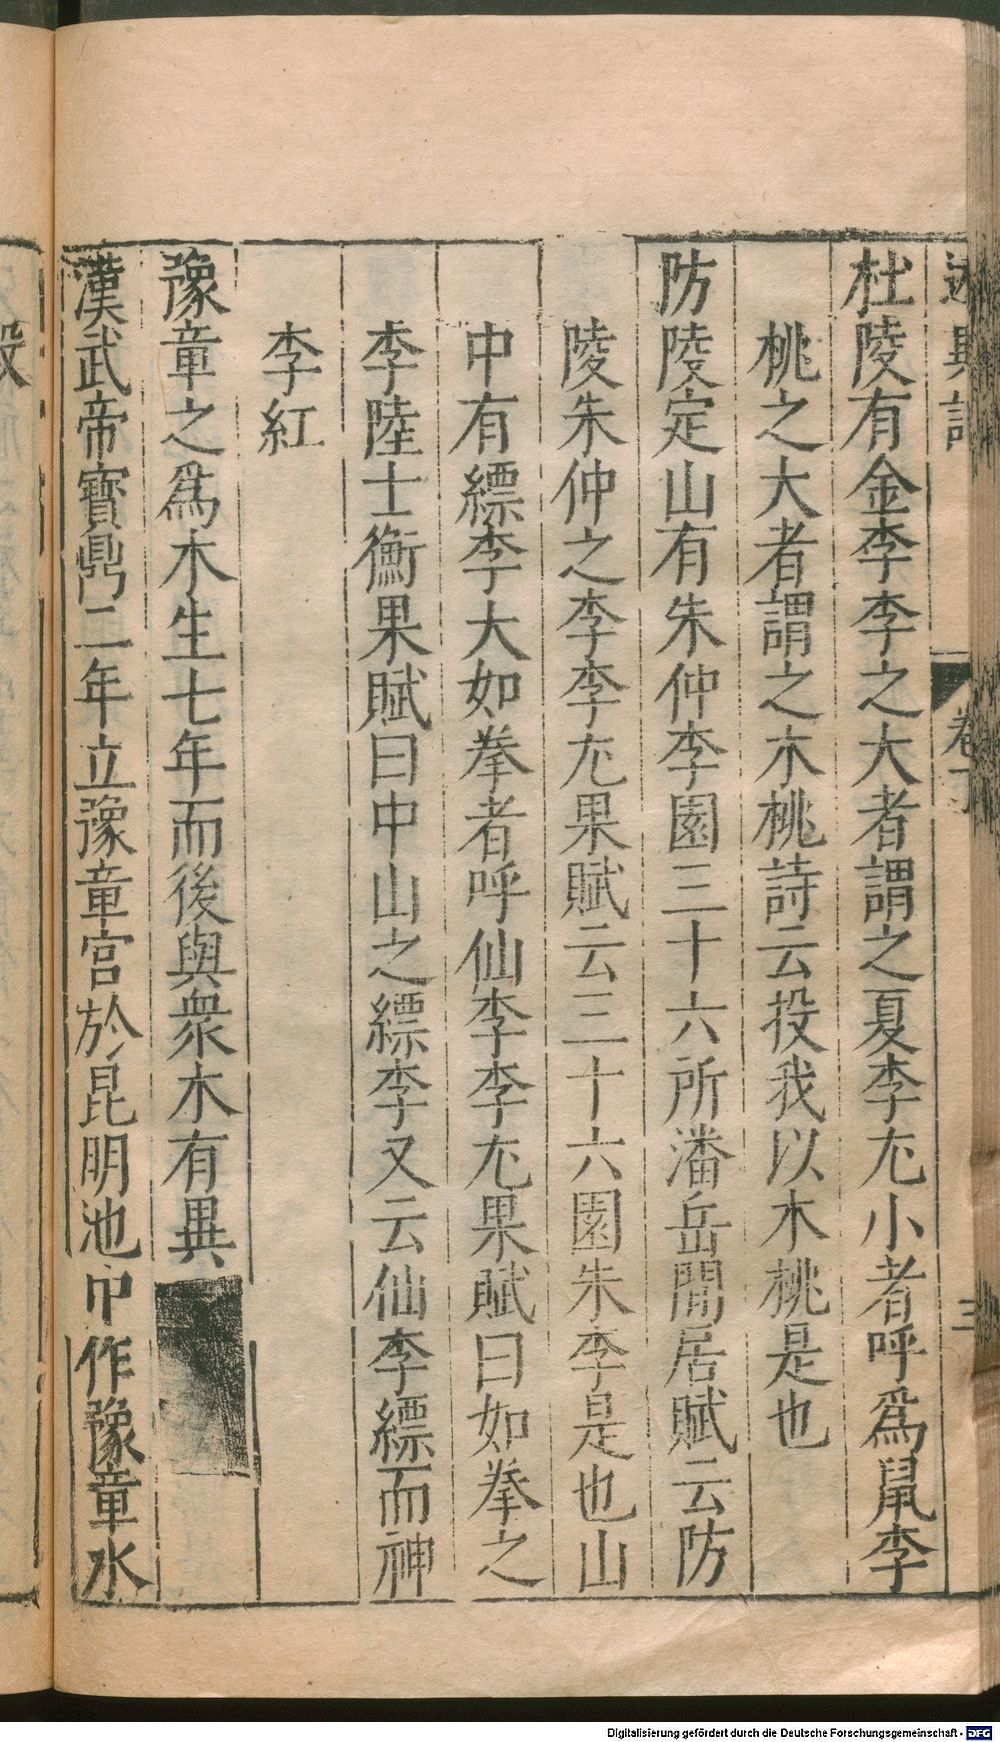 述異記 卷下 三
杜陵有金李李之大者謂之夏李尤小者呼爲鼠李
桃之大者謂之木桃詩云投我以木桃是也
防陵定山有朱仲李園三十六所潘岳閒居賦云防
陵朱仲之李李尤果賦云三十六園朱李是也山
中有縹李大如拳者呼仙李李尤果賦曰如拳之
李陸士衡果賦曰中山之縹李又云仙李縹而神
李紅
豫章之爲木生七年而後與衆木有異
漢武帝寶鼎二年立豫章宮於昆明池中作豫章水
殿
Digitalisierung gefördert durch die Deutsche Forschungsgemeinschaft - DFG